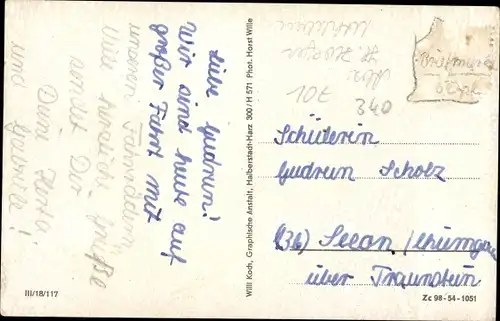 Liebe Gudrun!
Wir sind heute auf
großer Fahrt mit
unseren Fahrrädern.
Viele herzliche Grüße
sendet Dir
Deine Herta
und Gabriele!
Willi Koch, Graphische Anstalt, Halberstadt-Harz 300/H 571 Phot. Horst Wille
107
340
Schülerin
Gudrun Scholz
(13b) Seeon/Chiemgau
über Traunstein
III/18/117
Zc 98-54-1051